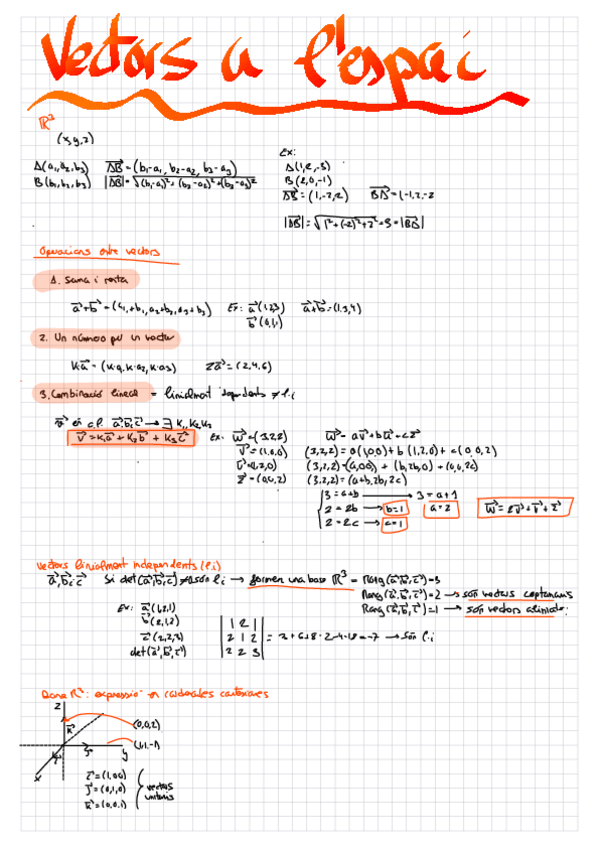 Vectors a l'espai
ℝ³
(x,y,z)
A(a₁,a₂,b₃) AB⃗=(b₁-a₁, b₂-a₂, b₃-a₃)
B(b₁,b₂,b₃) |AB⃗|=√(b₁-a₁)²+(b₂-a₂)²+(b₃-a₃)²
Ex:
A(1,2,-3)
B(2,0,-1)
AB⃗=(1,-2,2) BA⃗=(-1,2,-2
|AB⃗|=√1²+(-2)²+2²=3=|BA⃗|
Operacions entre vectors
1. Suma i resta
a⃗+b⃗=(a₁+b₁,a₂+b₂,a₃+b₃) Ex: a⃗(1,2,3) a⃗+b⃗=(1,3,4)
b⃗(0,1,1)
2. Un número per un vector
K·a⃗=(K·a₁,K·a₂,K·a₃) 2a⃗=(2,4,6)
3. Combinació lineal = linialment dependents ≠ l.i
v⃗ és c.l. a⃗,b⃗,c⃗ → ∃ K₁,K₂,K₃
v⃗=K₁a⃗+K₂b⃗+K₃c⃗ Ex: w⃗=(3,2,2) w⃗=av⃗+bu⃗+cz⃗
v⃗=(1,0,0) (3,2,2)=a(1,0,0)+b(1,2,0)+c(0,0,2)
u⃗=(1,2,0) (3,2,2)=(a,0,0)+(b,2b,0)+(0,0,2c)
z⃗=(0,0,2) (3,2,2)=(a+b,2b,2c)
3=a+b → 3=a+1
2=2b → b=1 a=2 w⃗=2v⃗+v⃗+z⃗
2=2c → c=1
Vectors linialment independents (l.i)
a⃗,b⃗,c⃗ Si det(a⃗,b⃗,c⃗)≠0 són l.i → formen una base ℝ³ = Rang(a⃗,b⃗,c⃗)=3
Rang(a⃗,b⃗,c⃗)=2 → són vectors coplanaris
Rang(a⃗,b⃗,c⃗)=1 → són vectors alineats
Ex: a⃗(1,2,1)
b⃗(2,1,2)
c⃗(2,2,3)
det(a⃗,b⃗,c⃗)
|1 2 1|
|2 1 2| = 3+6+8-2-4-18=-7 → són l.i
|2 2 3|
Base ℝ³: expressió en coordenades cartesianes
z
k⃗ (0,0,2)
j⃗ (1,1,-1)
i⃗ y
x
i⃗=(1,0,0)
j⃗=(0,1,0) vectors
k⃗=(0,0,1) unitaris